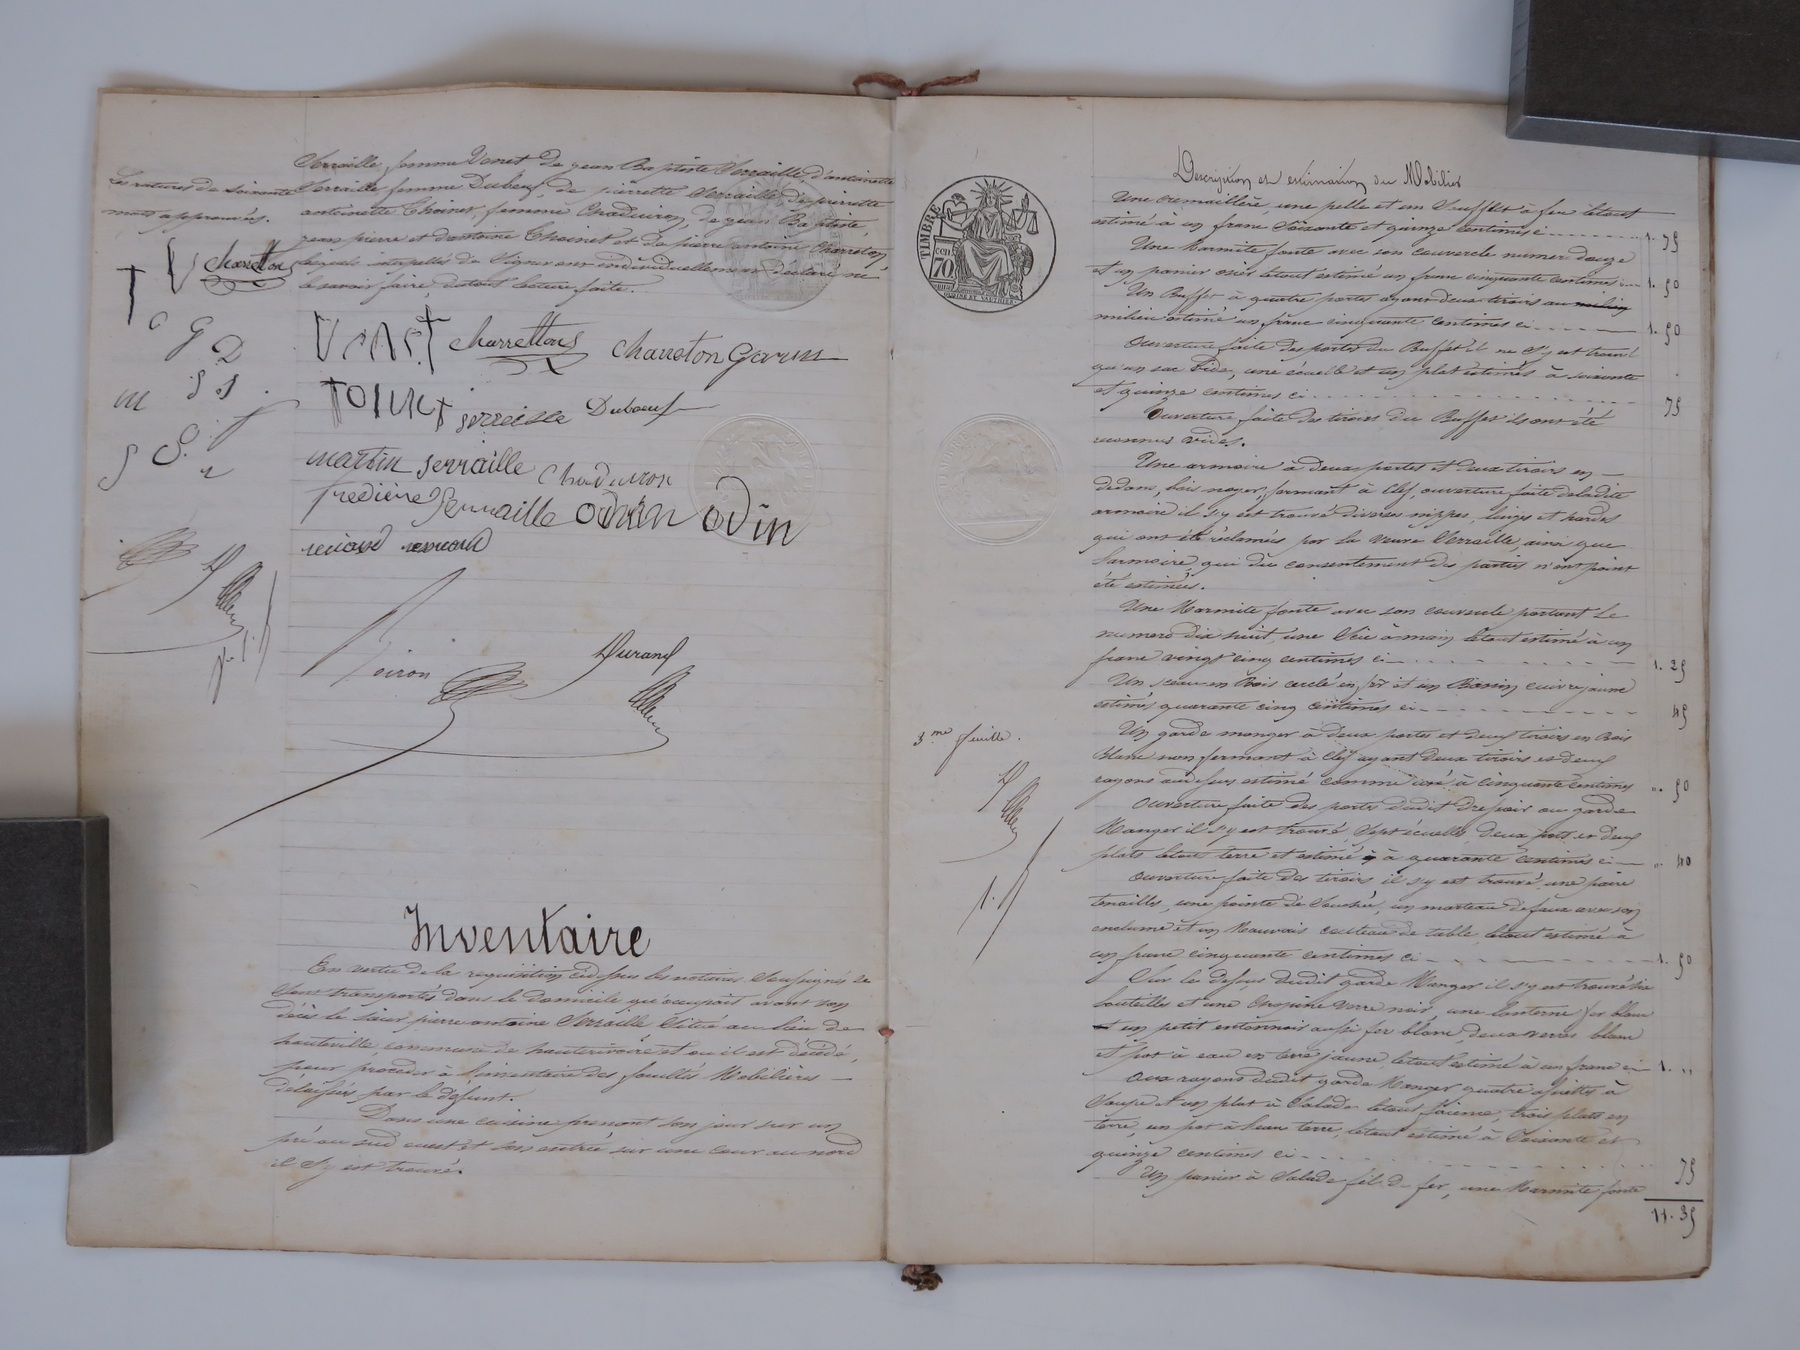 Serraille femme Venet de jean Baptiste Serraille, d'antoinette
Serraille femme Dubœuf, de pierrette Serraille, de pierrette
antoinette Choinet, femme Chaduiron, de jean Baptiste,
jean pierre et d'antoine Choinet et de pierre antoine Charreton
lesquels interpellés de Signer ont individuellement déclaré ne
le savoir faire, du tout lecture faite.
Les ratures de soixante
mots approuvés.
charettons
charrettons charreton
serraille Duboeuf
martin serraille Chaduiron
fredière Serraille odin odin
Durand
Inventaire
En vertu de la requisition ci dessus les notaires Soussignés se
Sont transportés dans le domicile qu'occupait avant son
décès le sieur pierre antoine Serraille Situé au lieu de
hauteville, commune de hauterivoire et ou il est décédé,
pour procéder à l'inventaire des facultés Mobilières
delaissés par le défunt.
Dans une cuisine prenant son jour sur un
pré au sud ouest et son entrée sur une cour au nord
il s'y est trouvé.
TIMBRE
70 cen
Description et estimation du Mobilier
Une cremaillère, une pelle et un Soufflet à feu letout
estimé à un franc Soixante et quinze centimes ci 1. 75
Une Marmite fonte avec son couvercle numero douze
et un panier osier letout estimé un franc cinquante centimes 1. 50
Un Buffet à quatre portes ayant deux tiroirs au
milieu estimé un franc cinquante centimes ci 1. 50
Ouverture faite des portes du Buffet il ne s'y est trouvé
qu'un sac vide, une écuelle et un plat estimés à soixante
et quinze centimes ci 75
Ouverture faite des tiroirs du Buffet ils ont été
reconnus vides.
Une armoire à deux portes et deux tiroirs en
dedans, bois noyer, fermant à Clef, ouverture faite de la dite
armoire il s'y est trouvé diverses nippes, linges et hardes
qui ont été réclamés par la veuve Serraille, ainsi que
l'armoire, qui du consentement des parties n'ont point
été estimés.
Une Marmite fonte avec son couvercle portant le
numero dix huit, une Scie à main letout estimé à un
franc vingt cinq centimes ci 1. 25
Un sceau en Bois cerclé en fer et un Bassin cuivre jaune
estimés quarante cinq centimes ci 45
Un garde manger à deux portes et deux tiroirs en Bois
blanc non fermant à Clef ayant deux tiroirs et deux
rayons au dessus estimé comme usé à cinquante centimes 50
3me feuille.
Ouverture faite des portes dudit dressoir ou garde
Manger il s'y est trouvé Sept écuelles, deux pots et deux
plats letout terre et estimé à quarante centimes ci 40
Ouverture faite des tiroirs il s'y est trouvé une paire
tenailles, une pointe de un marteau de faux avec son
enclume et un Mauvais couteau de table, letout estimé à
un franc cinquante centimes ci 1. 50
Sur le dessus dudit garde Manger il s'y est trouvé
bouteilles et une Chopine verre noir, une lanterne fer blanc
et un petit entonnoir aussi fer blanc, deux verres blanc
et pot à eau en terre jaune, letout estimé à un franc ci 1. "
Aux rayons dudit garde Manger quatre assiettes à
Soupe et un plat à Salade letout faïence, trois plats en
terre, un pot à l'eau terre, letout estimé à Soixante et
quinze centimes ci 75
Un panier à Salade fil de fer, une Marmite fonte
11. 35